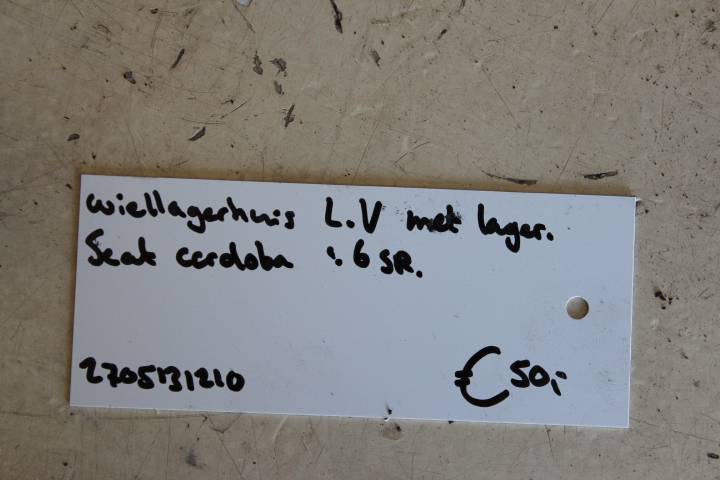 wiellagerhuis L.V met lager.
Seat cordoba 1.6 SR.
2705131210
€50,-